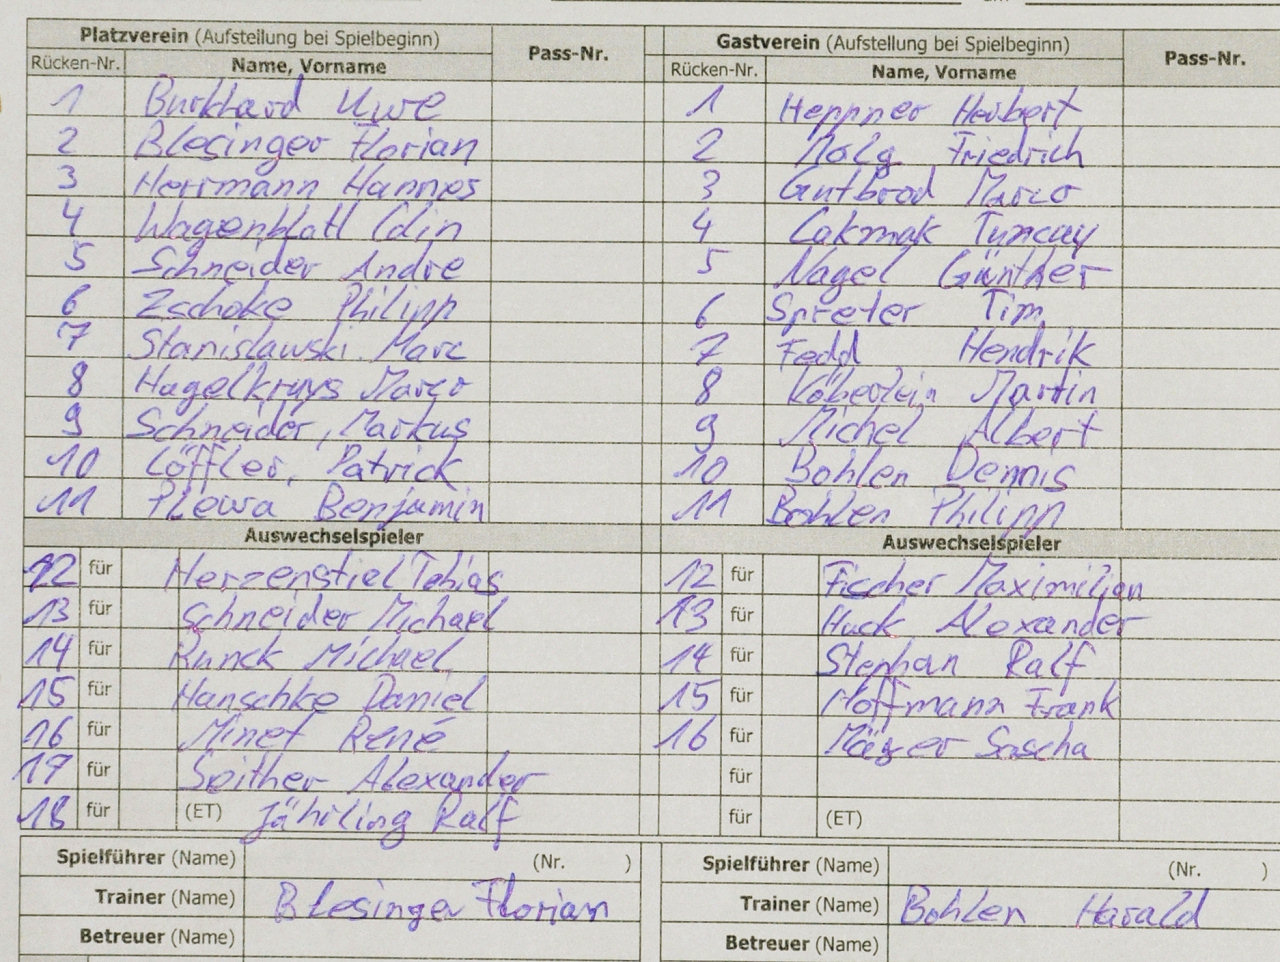 Platzverein (Aufstellung bei Spielbeginn) Pass-Nr.
Rücken-Nr. Name, Vorname
1 Burkhard Uwe
2 Blesinger Florian
3 Herrmann Hannes
4 Wagenblatt Colin
5 Schneider Andre
6 Zschoke Philipp
7 Stanislawski Marc
8 Hagelkruys Marco
9 Schneider, Markus
10 Löffler, Patrick
11 Plewa Benjamin
Auswechselspieler
12 für Herzenstiel Tobias
13 für Schneider Michael
14 für Runck Michael
15 für Hanschke Daniel
16 für Minet René
17 für Seither Alexander
18 für (ET) Jährling Ralf
Spielführer (Name) (Nr. )
Trainer (Name) Blesinger Florian
Betreuer (Name)
Gastverein (Aufstellung bei Spielbeginn) Pass-Nr.
Rücken-Nr. Name, Vorname
1 Heppner Herbert
2 Friedrich
3 Gutbrod Marco
4 Cakmak Tuncay
5 Nagel Günther
6 Spreter Tim
7 Fedd Hendrik
8 Köberlein Martin
9 Michel Albert
10 Bohlen Dennis
11 Bohlen Philipp
Auswechselspieler
12 für Fischer Maximilian
13 für Huck Alexander
14 für Stephan Ralf
15 für Hoffmann Frank
16 für Sascha
für
für (ET)
Spielführer (Name) (Nr. )
Trainer (Name) Bohlen Harald
Betreuer (Name)